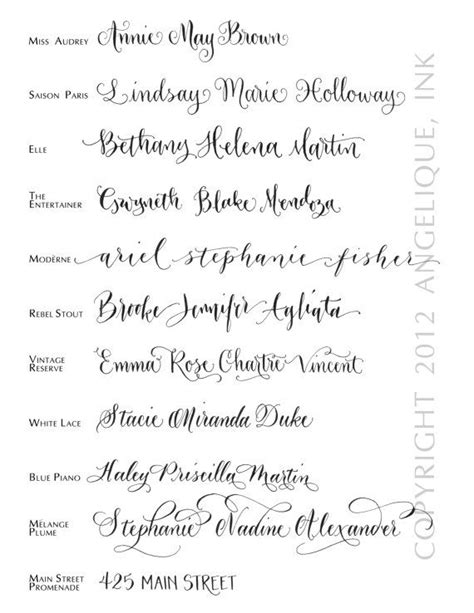 MISS AUDREY Annie May Brown
SAISON PARIS Lindsay Marie Holloway
ELLE Bethany Helena Martin
THE
ENTERTAINER Gwyneth Blake Mendoza
MODERNE ariel stephanie fisher
REBEL STOUT Brooke Jennifer Agliata
VINTAGE
RESERVE Emma Rose Chartre Vincent
WHITE LACE Stacie Miranda Duke
BLUE PIANO Haley Priscilla Martin
MÉLANGE
PLUME Stephanie Nadine Alexander
MAIN STREET
PROMENADE 425 MAIN STREET
COPYRIGHT 2012 ANGELIQUE, INK